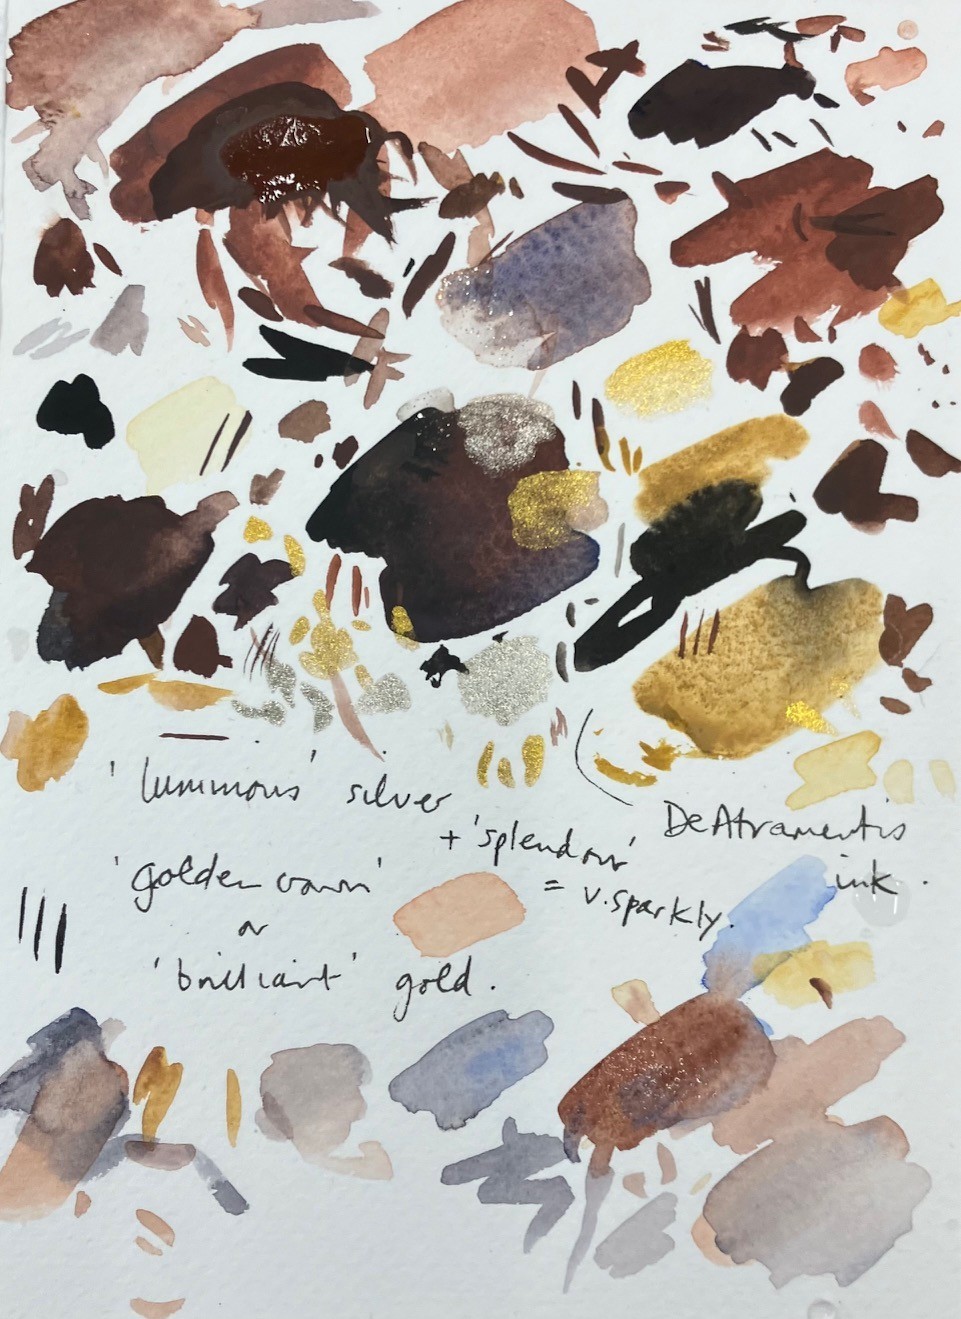 'luminous' silver
+ 'splendour'
= v.sparkly.
'golden crown'
or
'brilliant' gold.
DeAtramentis
ink.